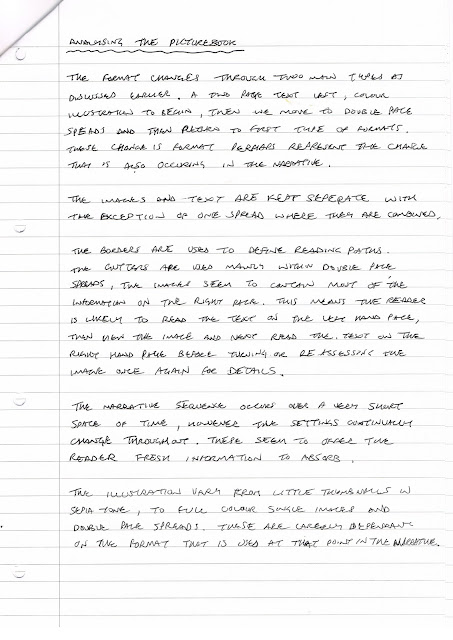 ANALYSING THE PICTUREBOOK
THE FORMAT CHANGES THROUGH TWO MAIN TYPES AS
DISCUSSED EARLIER. A TWO PAGE TEXT LEFT, COLOUR
ILLUSTRATION TO BEGIN, THEN WE MOVE TO DOUBLE PAGE
SPEADS AND THEN RETURN TO FIRST TYPE OF FORMATS.
THESE CHANGE IS FORMAT PERHAPS REPRESENT THE CHANGE
THAT IS ALSO OCCURING IN THE NARRATIVE.
THE IMAGES AND TEXT ARE KEPT SEPERATE WITH
THE EXCEPTION OF ONE SPREAD WHERE THEY ARE COMBINED.
THE BORDERS ARE USED TO DEFINE READING PATHS.
THE GUTTARS ARE USED MAINLY WITHIN DOUBLE PAGE
SPEADS, THE IMAGES SEEM TO CONTAIN MOST OF THE
INFORMATION ON THE RIGHT PAGE. THIS MEANS THE READER
IS LIKELY TO READ THE TEXT ON THE LEFT HAND PAGE,
THEN VIEW THE IMAGE AND NEXT READ THE TEXT ON THE
RIGHT HAND PAGE BEFORE TURNING OR RE ASSESSING THE
IMAGE ONCE AGAIN FOR DETAILS.
THE NARRATIVE SEQUENCE OCCURS OVER A VERY SHORT
SPACE OF TIME, HOWEVER THE SETTINGS CONTINUALLY
CHANGE THROUGHOUT. THESE SEEM TO OFFER THE
READER FRESH INFORMATION TO ABSORB.
THE ILLUSTRATION VARY FROM LITTLE THUMBNAILS IN
SEPIA TONE, TO FULL COLOUR SINGLE IMAGES AND
DOUBLE PAGE SPREADS. THESE ARE LARGELY DEPENDANT
ON THE FORMAT THAT IS USED AT THAT POINT IN THE NARRATIVE.